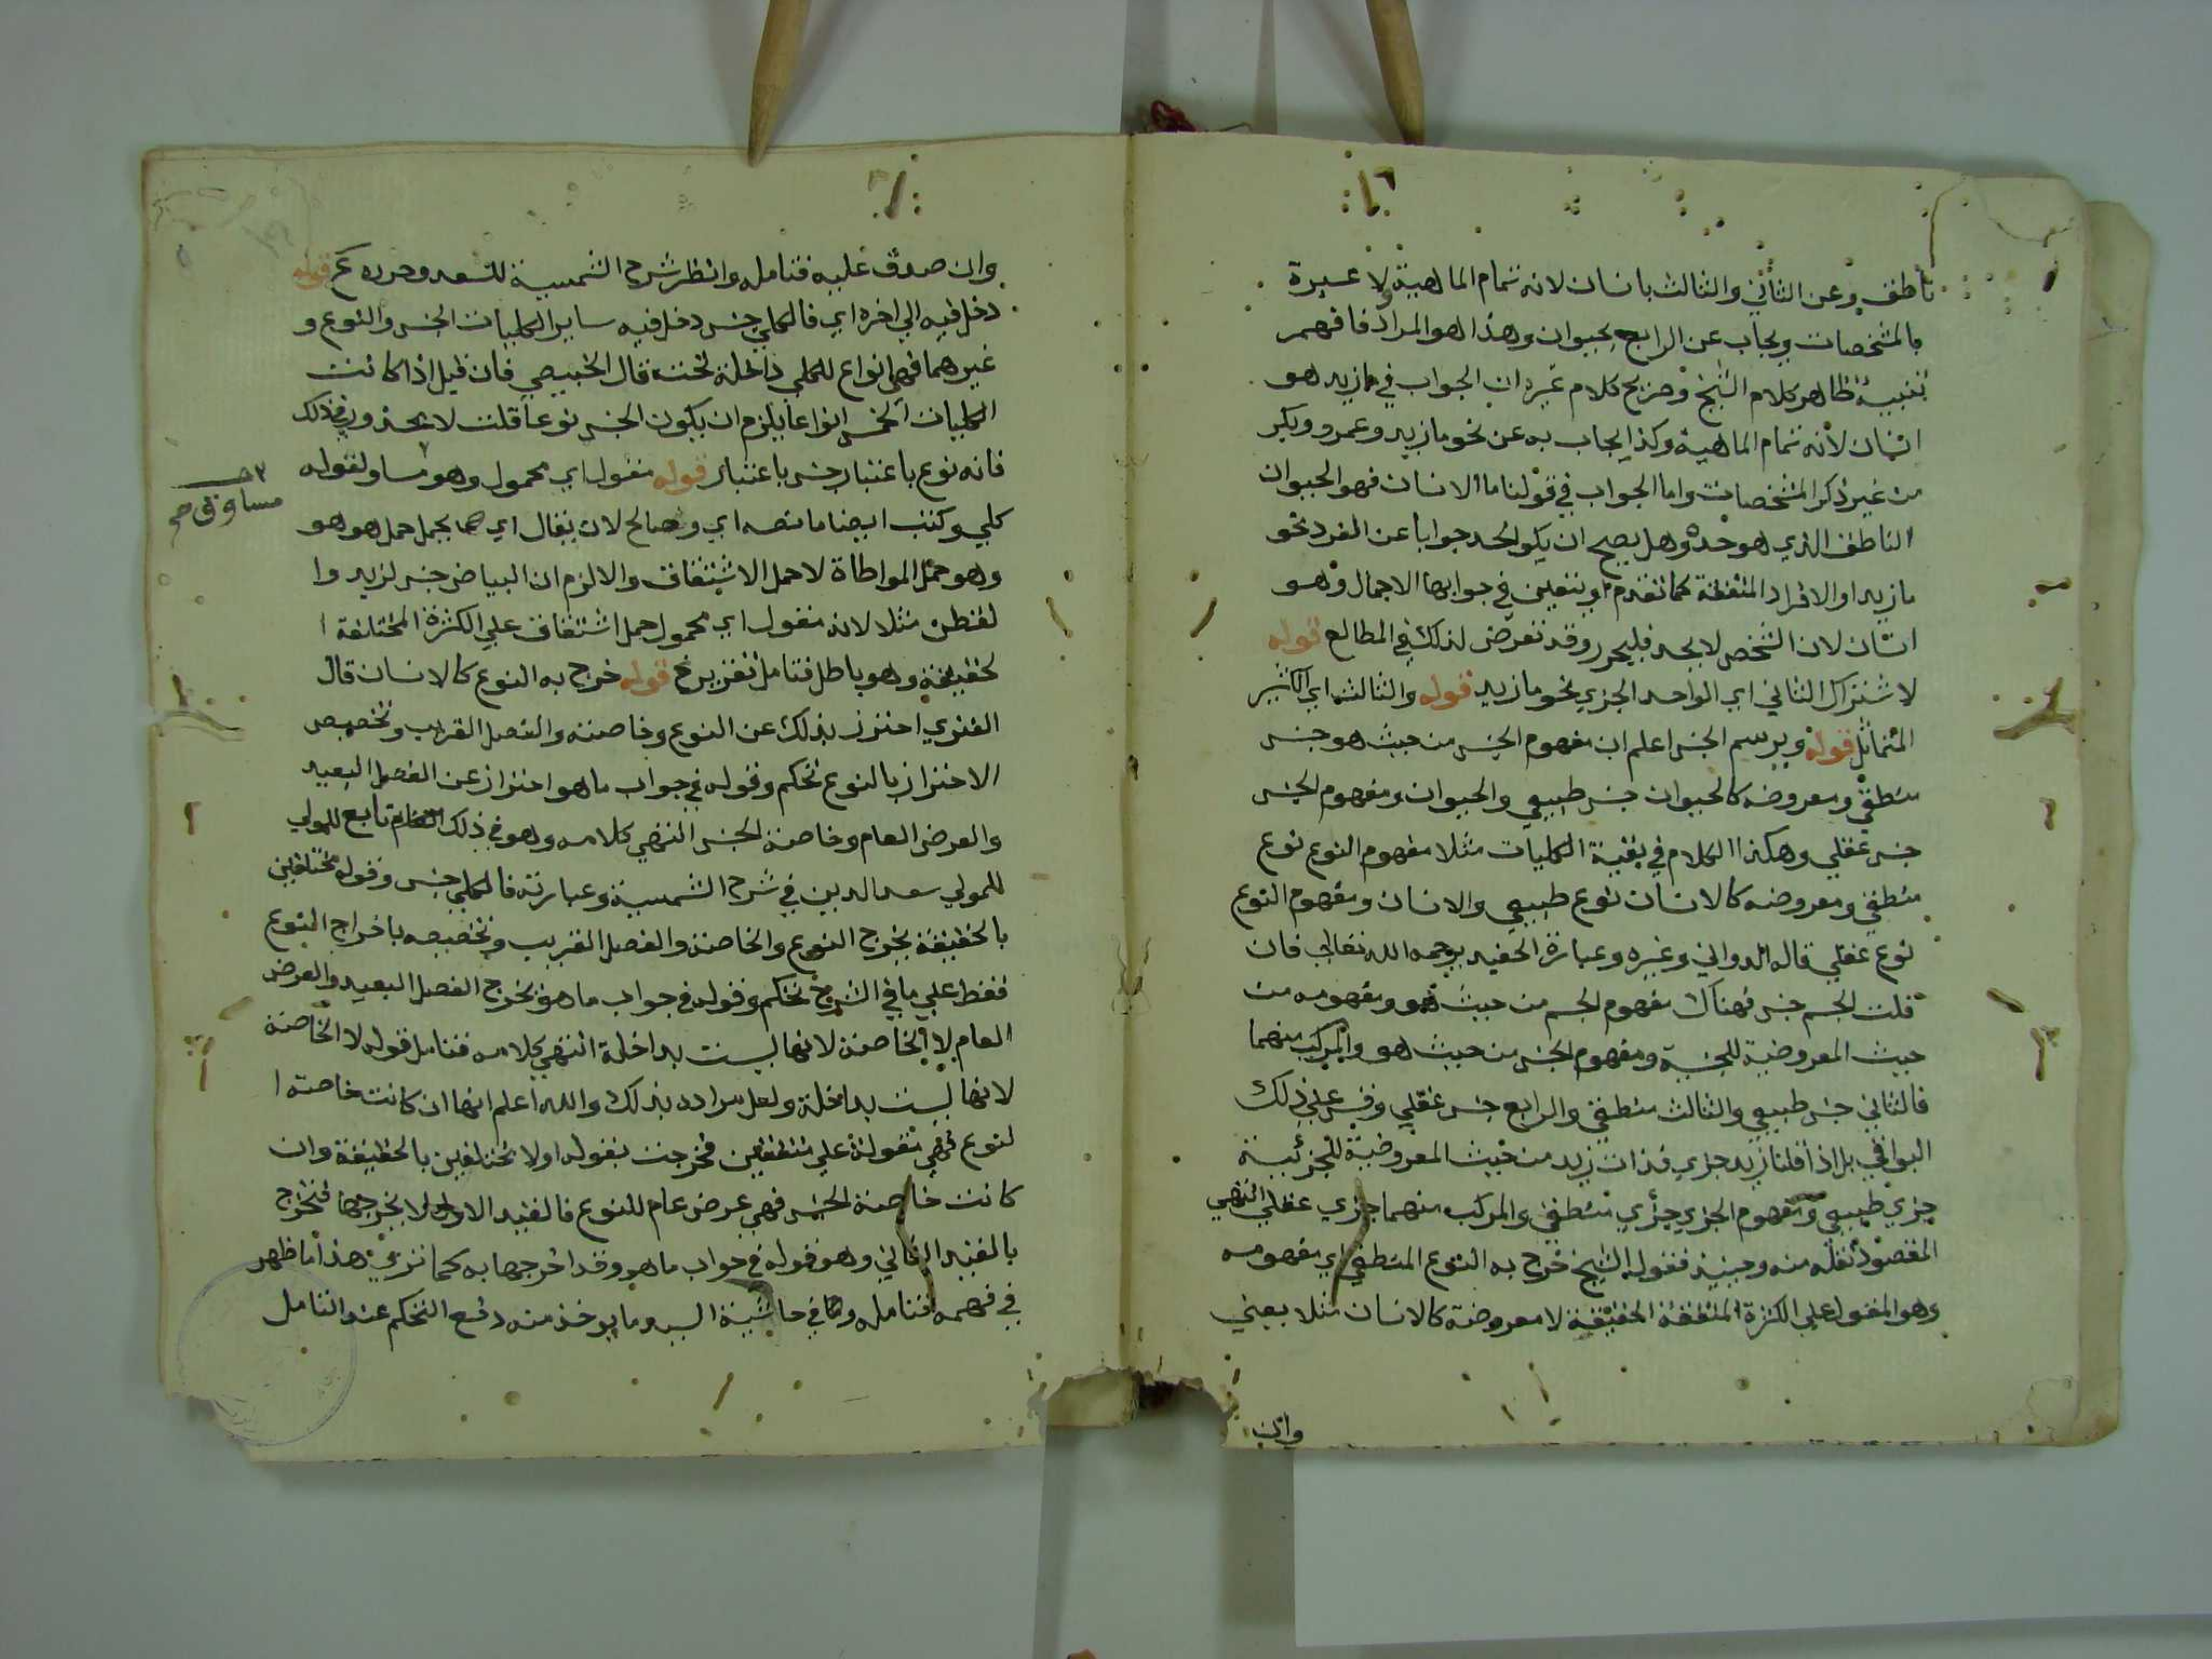 ناطق وعن الثاني والثالث بانسان لانه تمام الماهية ولا عبرة
بالمشخصات ويجاب عن الرابع بحيوان وهذا هو المراد فافهم
تنبيه ظاهر كلام الشيخ وصريح كلام غيره ان الجواب في مازيد هو
انسان لانه تمام الماهية وكذا يجاب به عن نحو مازيد وعمرو وبكر
من غير ذكر المشخصات واما الجواب في قولنا ما الانسان فهو الحيوان
الناطق الذي هو حده وهل يصح ان يكون الحد جوابا عن الفرد نحو
مازيد او الافراد المتفقة كما تقدم او يتعين في جوابها الاجمال وهو
انسان لان الشخص لا يحد فليحرر وقد تعرض لذلك في المطالع قوله
لاشتراك الثاني اي الواحد الجزي نحو مازيد قوله والثالث اي الكثير
المتماثل قوله ويرسم الجنس اعلم ان مفهوم الجنس من حيث هو جنس
منطقي ومعروضه كالحيوان جنس طبيعي والحيوان ومفهوم الجنس
جنس عقلي وهكذا الكلام في بقية الكليات مثلا مفهوم النوع نوع
منطقي ومعروضه كالانسان نوع طبيعي والانسان ومفهوم النوع
نوع عقلي قاله الدواني وغيره وعبارة الحفيد يرحمه الله تعالى فان
قلت الجسم جنس فهناك مفهوم الجسم من حيث هو ومفهومه من
حيث المعروضية للجنسية ومفهوم الجنس من حيث هو والمركب منهما
فالثاني جنس طبيعي والثالث منطقي والرابع جنس عقلي وقس على ذلك
البواقي بل اذا قلنا زيد جزي فذات زيد من حيث المعروضية للجزئية
جزي طبيعي ومفهوم الجزي جزي منطقي والمركب منهما جزي عقلي انتهى
المقصود نقله منه وحينيذ فقول الشيخ خرج به النوع المنطقي اي مفهومه
وهو المقول على الكثرة المتفقة الحقيقة لا معروضه كالانسان مثلا يعني
وان
وان صدق عليه فتامله وانظر شرح الشمسية للسعد وحرره قوله
دخل فيه الى اخره اي فالكلي جنس دخل فيه ساير الكليات الجنس والنوع و
غيرهما فهي انواع للكلي داخلة تحته قال الخبيصي فان قيل اذا كانت
الكليات الخمس انواعا يلزم ان يكون الجنس نوعا قلت لا محذور في ذلك
فانه نوع باعتبار جنس باعتبار قوله مقول اي محمول وهو مساو لقوله
كلي وكتب ايضا ما نصه اي وصالح لان يقال اي يحمل حمل هو هو
وهو حمل المواطاة لا حمل الاشتقاق والا لزم ان البياض جنس لزيد وا
لقطن مثلا لانه مقول اي محمول حمل اشتقاق على الكثرة المختلفة ا
لحقيقة وهو باطل فتامل تقرير قوله خرج به النوع كالانسان قال
الفنري احترز بذلك عن النوع وخاصته والفصل القريب وتخصيص
الاحتراز بالنوع تحكم وقوله في جواب ما هو احتراز عن الفصل البعيد
والعرض العام وخاصة الجنس انتهى كلامه وهو في ذلك تابع للمولى
للمولي سعد الدين في شرح الشمسية وعبارته فالكلي جنس وقوله مختلفين
بالحقيقة يخرج النوع والخاصة والفصل القريب وتخصيصه باخراج النوع
فقط على ما في الشرح تحكم وقوله في جواب ما هو يخرج الفصل البعيد والعرض
العام لا الخاصة لانها ليست بداخلة انتهى كلامه فتامل قوله لا الخاصة
لانها ليست بداخلة ولعل مراده بذلك والله اعلم انها ان كانت خاصة ا
لنوع فهي مقولة على متفقين فخرجت بقوله اولا مختلفين بالحقيقة وان
كانت خاصة الجنس فهي عرض عام للنوع فالقيد الاول لا يخرجها فتخرج
بالقيد الثاني وهو قوله في جواب ما هو وقد اخرجها به كما ترى هذا ما ظهر
في فهمه فتامله وفي حاشية السيد ما يوخذ منه دفع التحكم عند التامل
مساوق صح